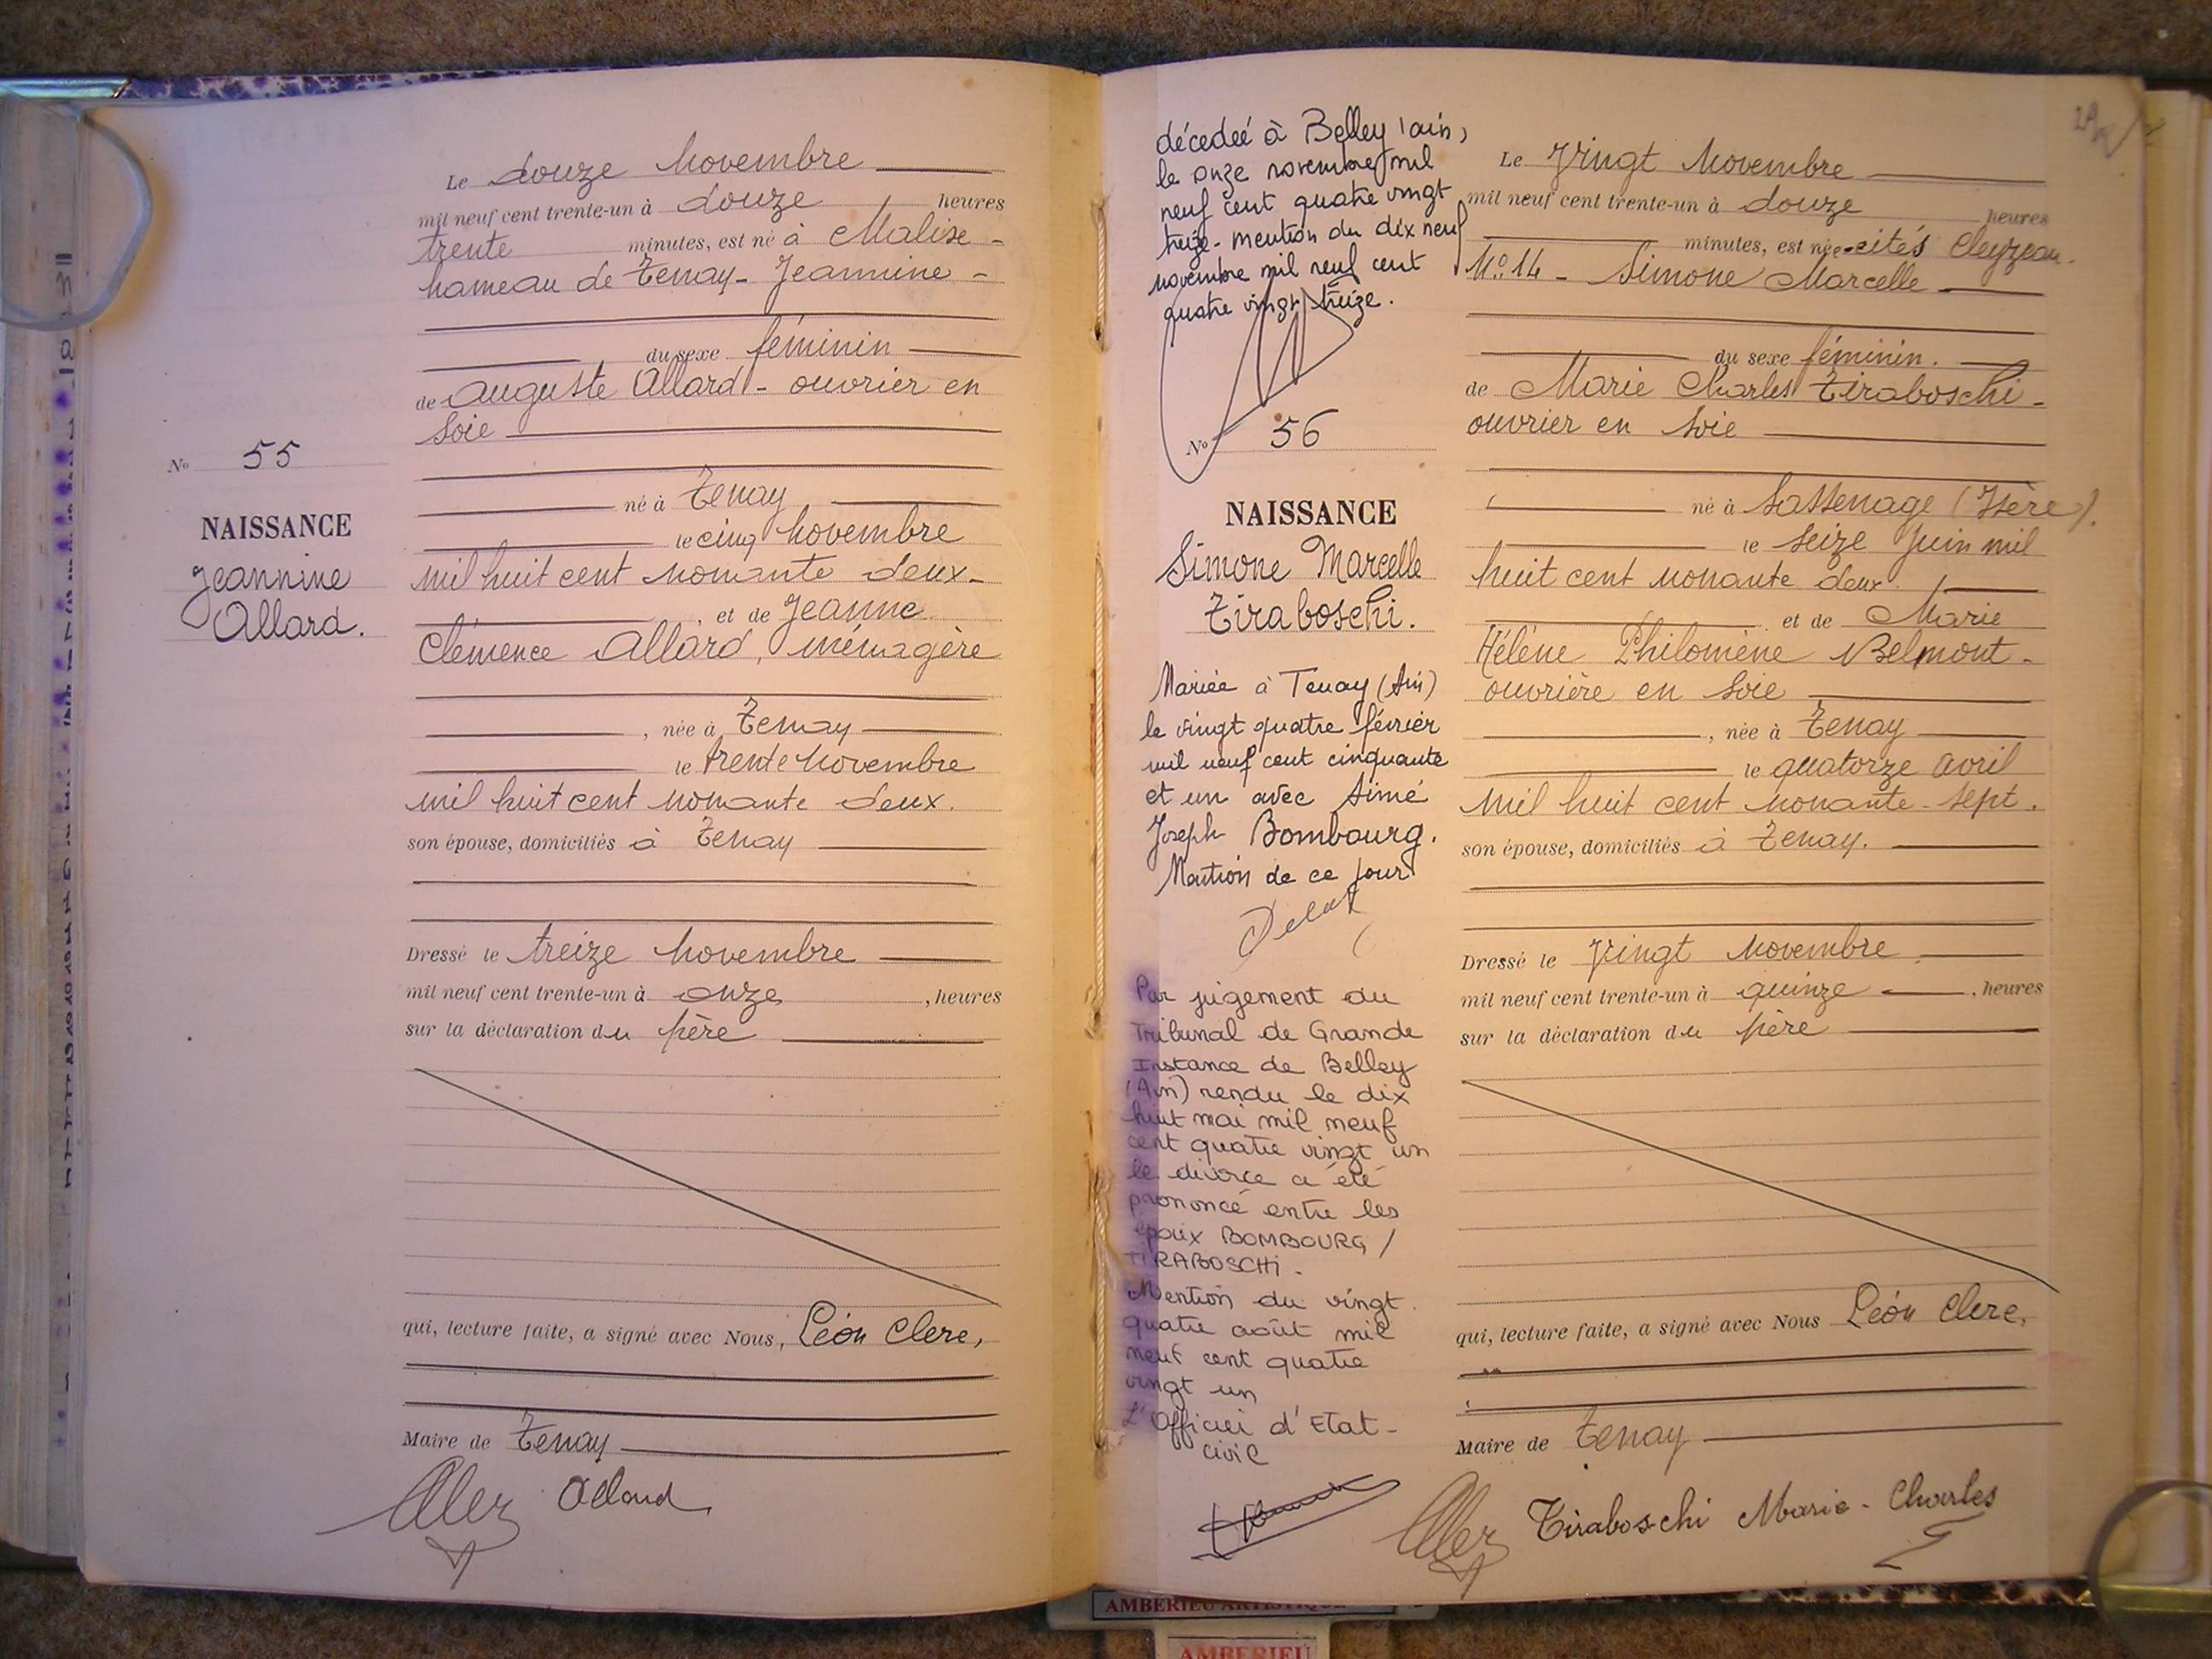 Le douze Novembre
mil neuf cent trente-un à douze heures
trente minutes, est né à Malise -
hameau de Tenay - Jeannine -
du sexe féminin
de Auguste Allard - ouvrier en
Soie
né à Tenay
le cinq Novembre
mil huit cent nonante deux -
, et de Jeanne
Clémence Allard, ménagère
, née à Tenay
le trente Novembre
mil huit cent nonante deux.
son épouse, domiciliés à Tenay
Dressé le treize Novembre
mil neuf cent trente-un à onze , heures
sur la déclaration du père
qui, lecture faite, a signé avec Nous, Léon Clerc,
Maire de Tenay
Allard
No 55
NAISSANCE
Jeannine
Allard.
décedeé à Belley (ain)
le onze novembre mil
neuf cent quatre vingt
treize - mention du dix neuf
novembre mil neuf cent
quatre vingt treize.
No 56
NAISSANCE
Simone Marcelle
Tiraboschi.
Mariée à Tenay (Ain)
le vingt quatre février
mil neuf cent cinquante
et un avec Aimé
Joseph Bombourg.
Mention de ce jour
Par jugement du
Tribunal de Grande
Instance de Belley
(Ain) rendu le dix
huit mai mil neuf
cent quatre vingt un
le divorce a été
prononcé entre les
époux BOMBOURG /
TIRABOSCHI -
Mention du vingt
quatre août mil
neuf cent quatre
vingt un
L'Officier d'Etat -
civil
Le Vingt Novembre
mil neuf cent trente-un à douze heures
minutes, est née cités Cleyzeau -
No 14 - Simone Marcelle
du sexe féminin.
de Marie Charles Tiraboschi -
ouvrier en Soie
né à Sassenage (Isère).
le seize Juin mil
huit cent nonante deux
et de Marie
Hélène Philomène Belmont -
ouvrière en Soie
, née à Tenay
le quatorze avril
mil huit cent nonante - sept.
son épouse, domiciliés à Tenay.
Dressé le Vingt Novembre
mil neuf cent trente-un à quinze , heures
sur la déclaration du père
qui, lecture faite, a signé avec Nous Léon Clerc,
Maire de Tenay
Tiraboschi Marie - Charles
AMBERIEU ARTISTIQUE
AMBERIEU